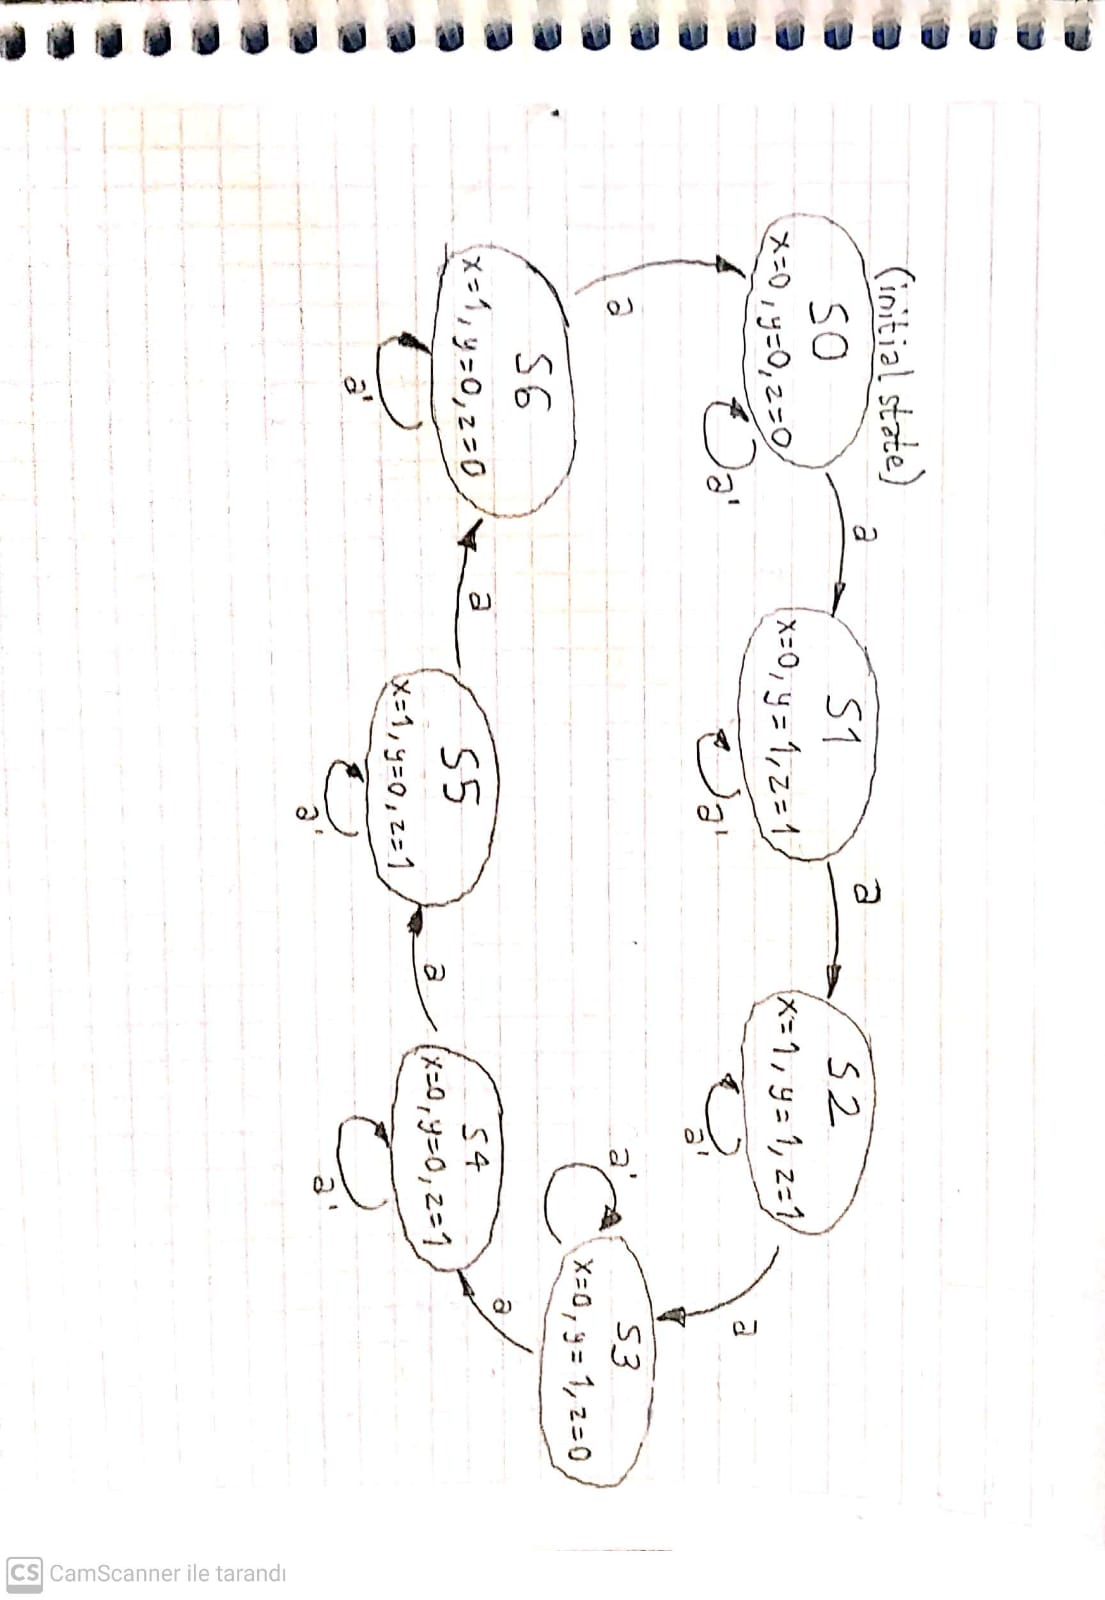 (initial state)
S0
x=0, y=0, z=0
a
a'
S1
x=0, y=1, z=1
a
a'
S2
x=1, y=1, z=1
a
a'
S3
x=0, y=1, z=0
a'
a
S4
x=0, y=0, z=1
a
a'
S5
x=1, y=0, z=1
a
a'
S6
x=1, y=0, z=0
a
a'
CS CamScanner ile tarandı